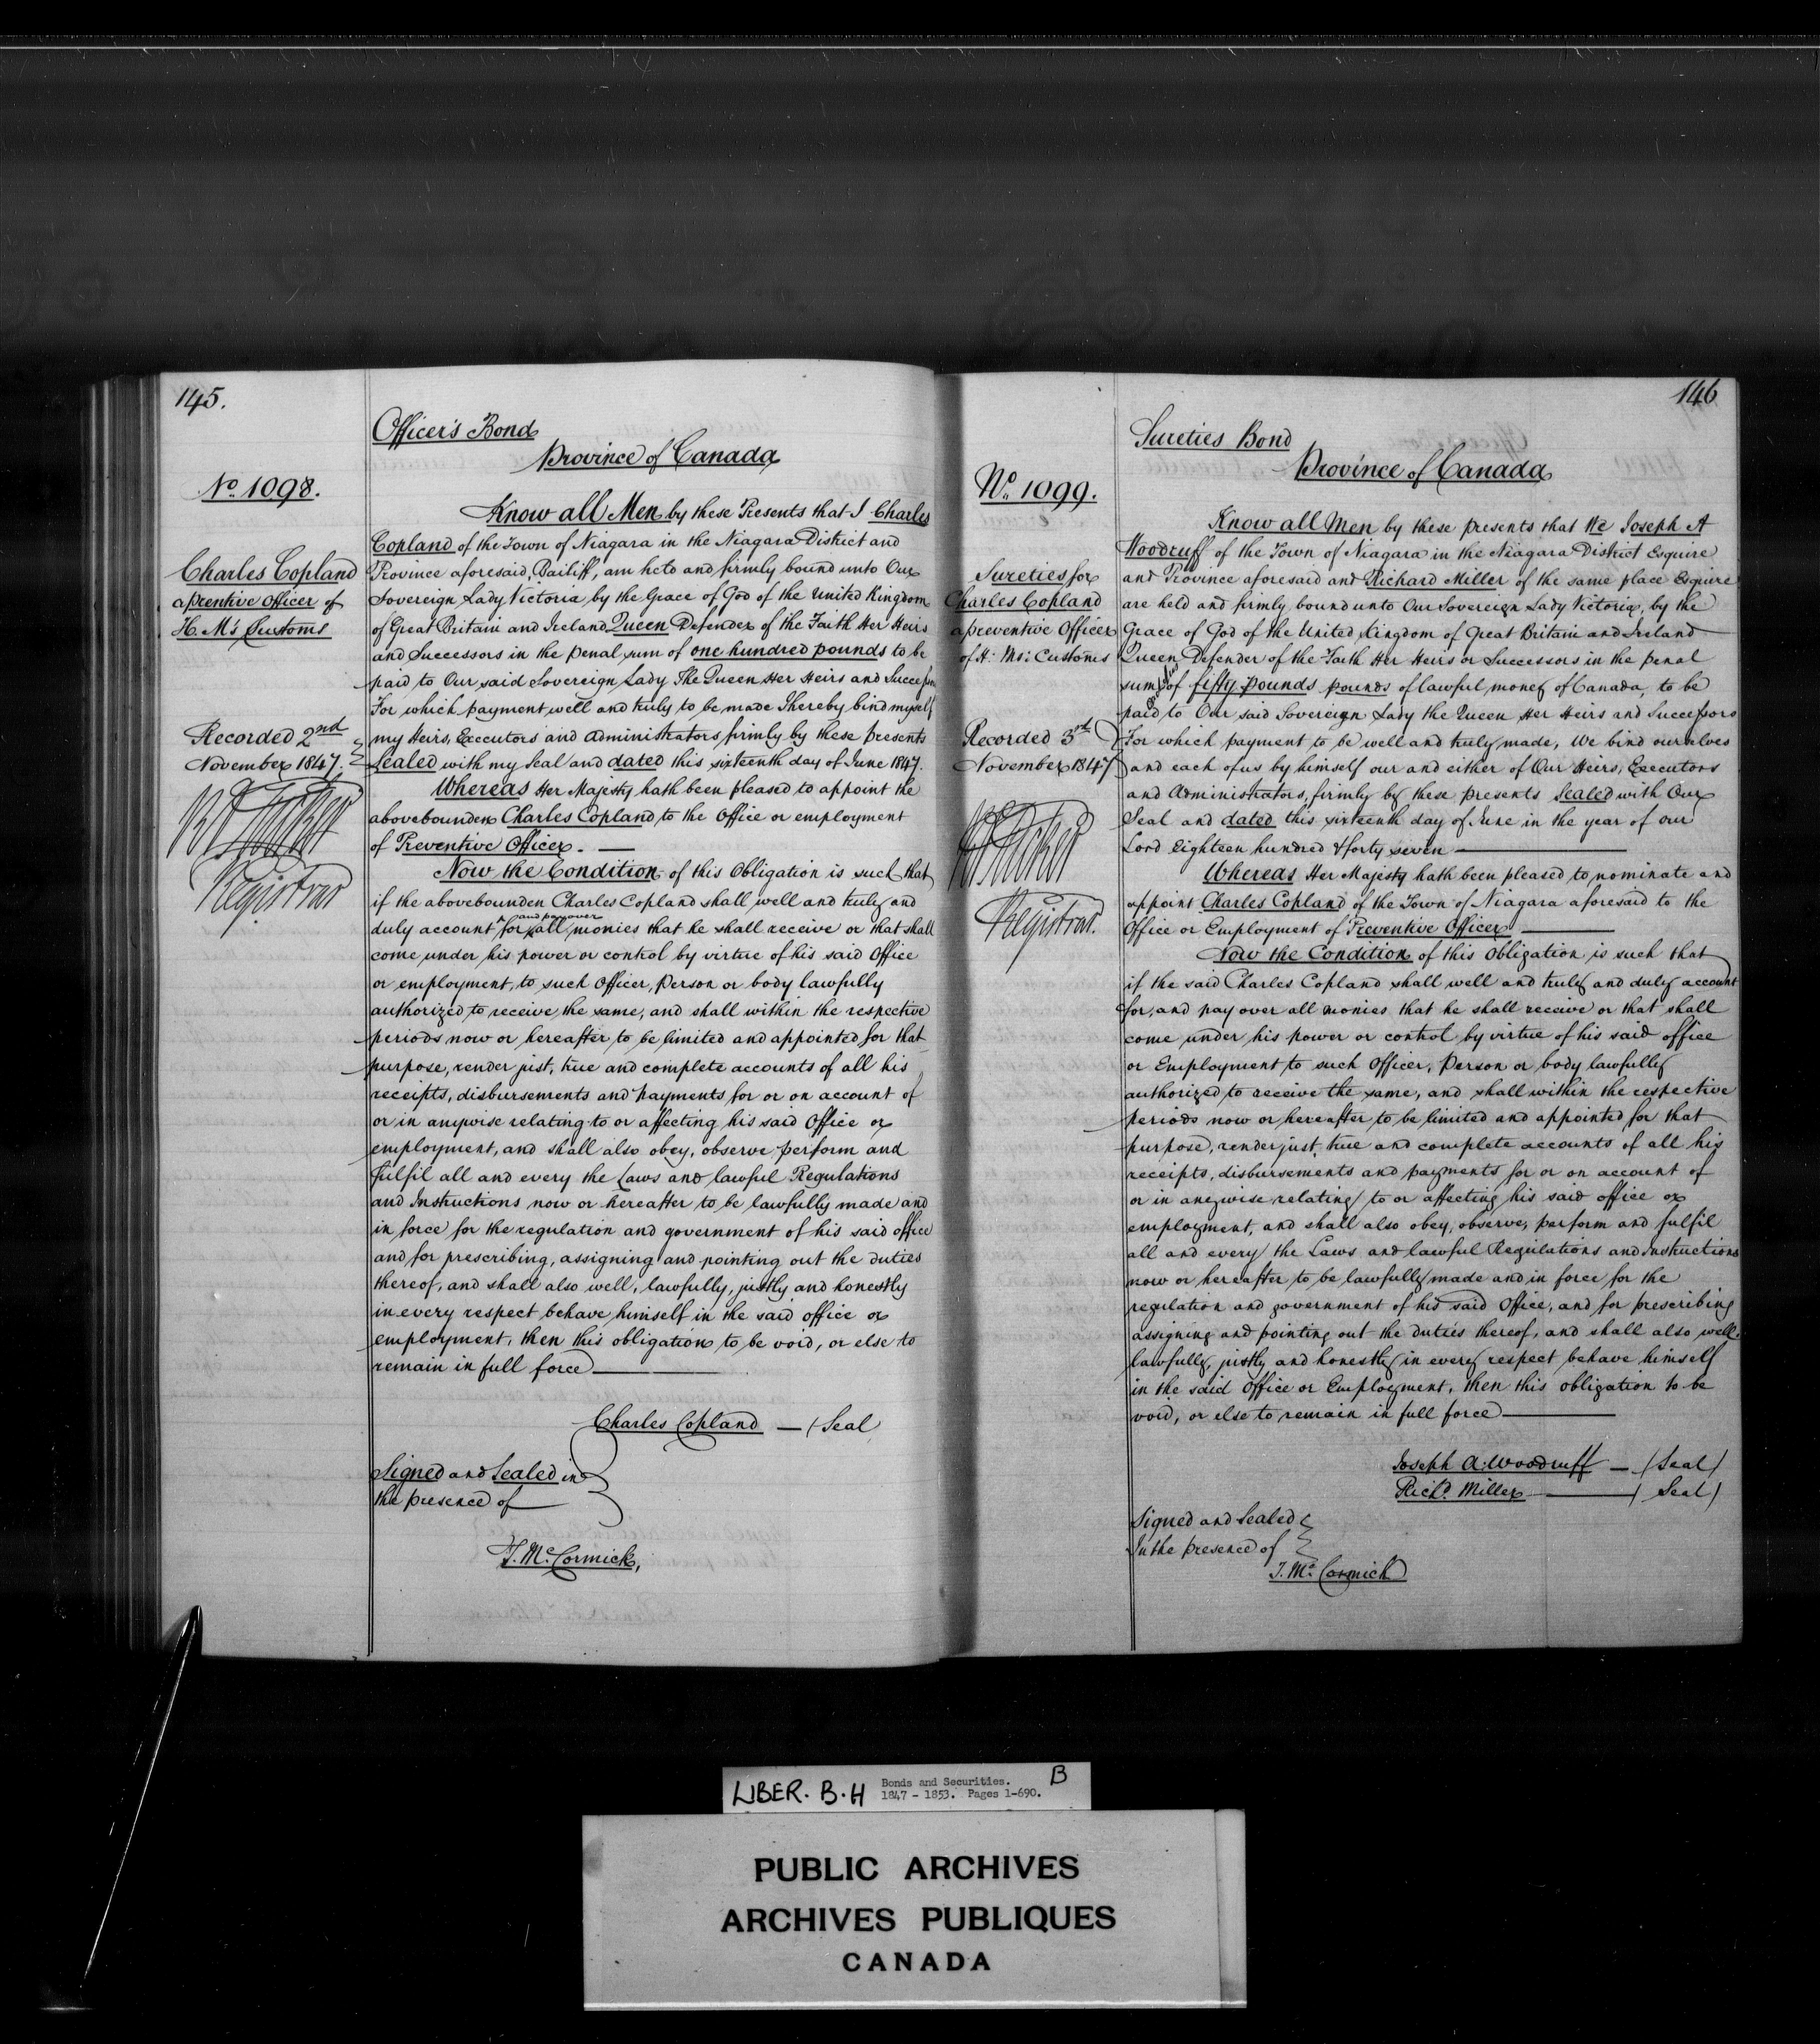 145.
Officer's Bond
Province of Canada
No. 1098.
Know all Men by these Presents that I Charles
Copland of the Town of Niagara in the Niagara District and
Province aforesaid, Bailiff, am held and firmly bound unto Our
Sovereign Lady Victoria by the Grace of God of the United Kingdom
of Great Britain and Ireland Queen Defender of the Faith Her Heirs
and Successors in the penal sum of one hundred pounds to be
paid to Our said Sovereign Lady The Queen Her Heirs and Successors
For which payment well and truly to be made I hereby bind myself
my Heirs, Executors and Administrators firmly by these presents
Sealed with my Seal and dated this sixteenth day of June 1847.
Charles Copland
a prentive Officer of
H. M's Customs
Recorded 2nd
November 1847.
Registrar
Whereas Her Majesty hath been pleased to appoint the
abovebounden Charles Copland to the Office or employment
of Preventive Officer. —
Now the Condition of this Obligation is such that
if the abovebounden Charles Copland shall well and truly and
duly account for and pay over all monies that he shall receive or that shall
come under his power or control by virtue of his said Office
or employment, to such Officer, Person or body lawfully
authorized to receive the same, and shall within the respective
periods now or hereafter to be limited and appointed for that
purpose, render just, true and complete accounts of all his
receipts, disbursements and payments for or on account of
or in anywise relating to or affecting his said Office or
employment, and shall also obey, observe perform and
fulfil all and every the Laws and lawful Regulations
and Instructions now or hereafter to be lawfully made and
in force for the regulation and government of his said office
and for prescribing, assigning and pointing out the duties
thereof, and shall also well, lawfully, justly and honestly
in every respect behave himself in the said office or
employment, then this obligation to be void, or else to
remain in full force —
Charles Copland — (Seal
Signed and Sealed in
the presence of
T. Mc.Cormick,
146
Sureties Bond
Province of Canada
No. 1099.
Know all Men by these presents that We Joseph A
Woodruff of the Town of Niagara in the Niagara District Esquire
and Province aforesaid and Richard Miller of the same place Esquire
are held and firmly bound unto Our Sovereign Lady Victoria, by the
Grace of God of the United Kingdom of Great Britain and Ireland
Queen Defender of the Faith Her Heirs or Successors in the penal
sum of fifty pounds pounds of lawful money of Canada, to be
paid to Our said Sovereign Lady the Queen Her Heirs and Successors
For which payment to be well and truly made, We bind ourselves
and each of us by himself our and either of Our Heirs, Executors
and Administrators, firmly by these presents Sealed with Our
Seal and dated this sixteenth day of June in the year of our
Lord Eighteen hundred & forty seven —
Sureties for
Charles Copland
a preventive Officer
of H. Ms: Customs
Recorded 3rd
November 1847
Registrar.
Whereas Her Majesty hath been pleased to nominate and
appoint Charles Copland of the Town of Niagara aforesaid to the
Office or Employment of Preventive Officer —
Now the Condition of this Obligation is such that
if the said Charles Copland shall well and truly and duly account
for, and pay over all monies that he shall receive or that shall
come under his power or control by virtue of his said office
or Employment to such Officer, Person or body lawfully
authorized to receive the same, and shall within the respective
periods now or hereafter to be limited and appointed for that
purpose, render just, true and complete accounts of all his
receipts, disbursements and payments for or on account of
or in anywise relating to or affecting his said office or
employment, and shall also obey, observe, perform and fulfil
all and every the Laws and lawful Regulations and Instructions
now or hereafter to be lawfully made and in force for the
regulation and government of his said Office, and for prescribing
assigning and pointing out the duties thereof, and shall also well.
lawfully, justly and honestly in every respect behave himself
in the said Office or Employment, then this obligation to be
void, or else to remain in full force —
Joseph A. Woodruff — (Seal)
Richd. Miller — (Seal)
Signed and Sealed
In the presence of
T. Mc. Cormick
LIBER. B.H Bonds and Securities. B
1847 - 1853. Pages 1-690.
PUBLIC ARCHIVES
ARCHIVES PUBLIQUES
CANADA